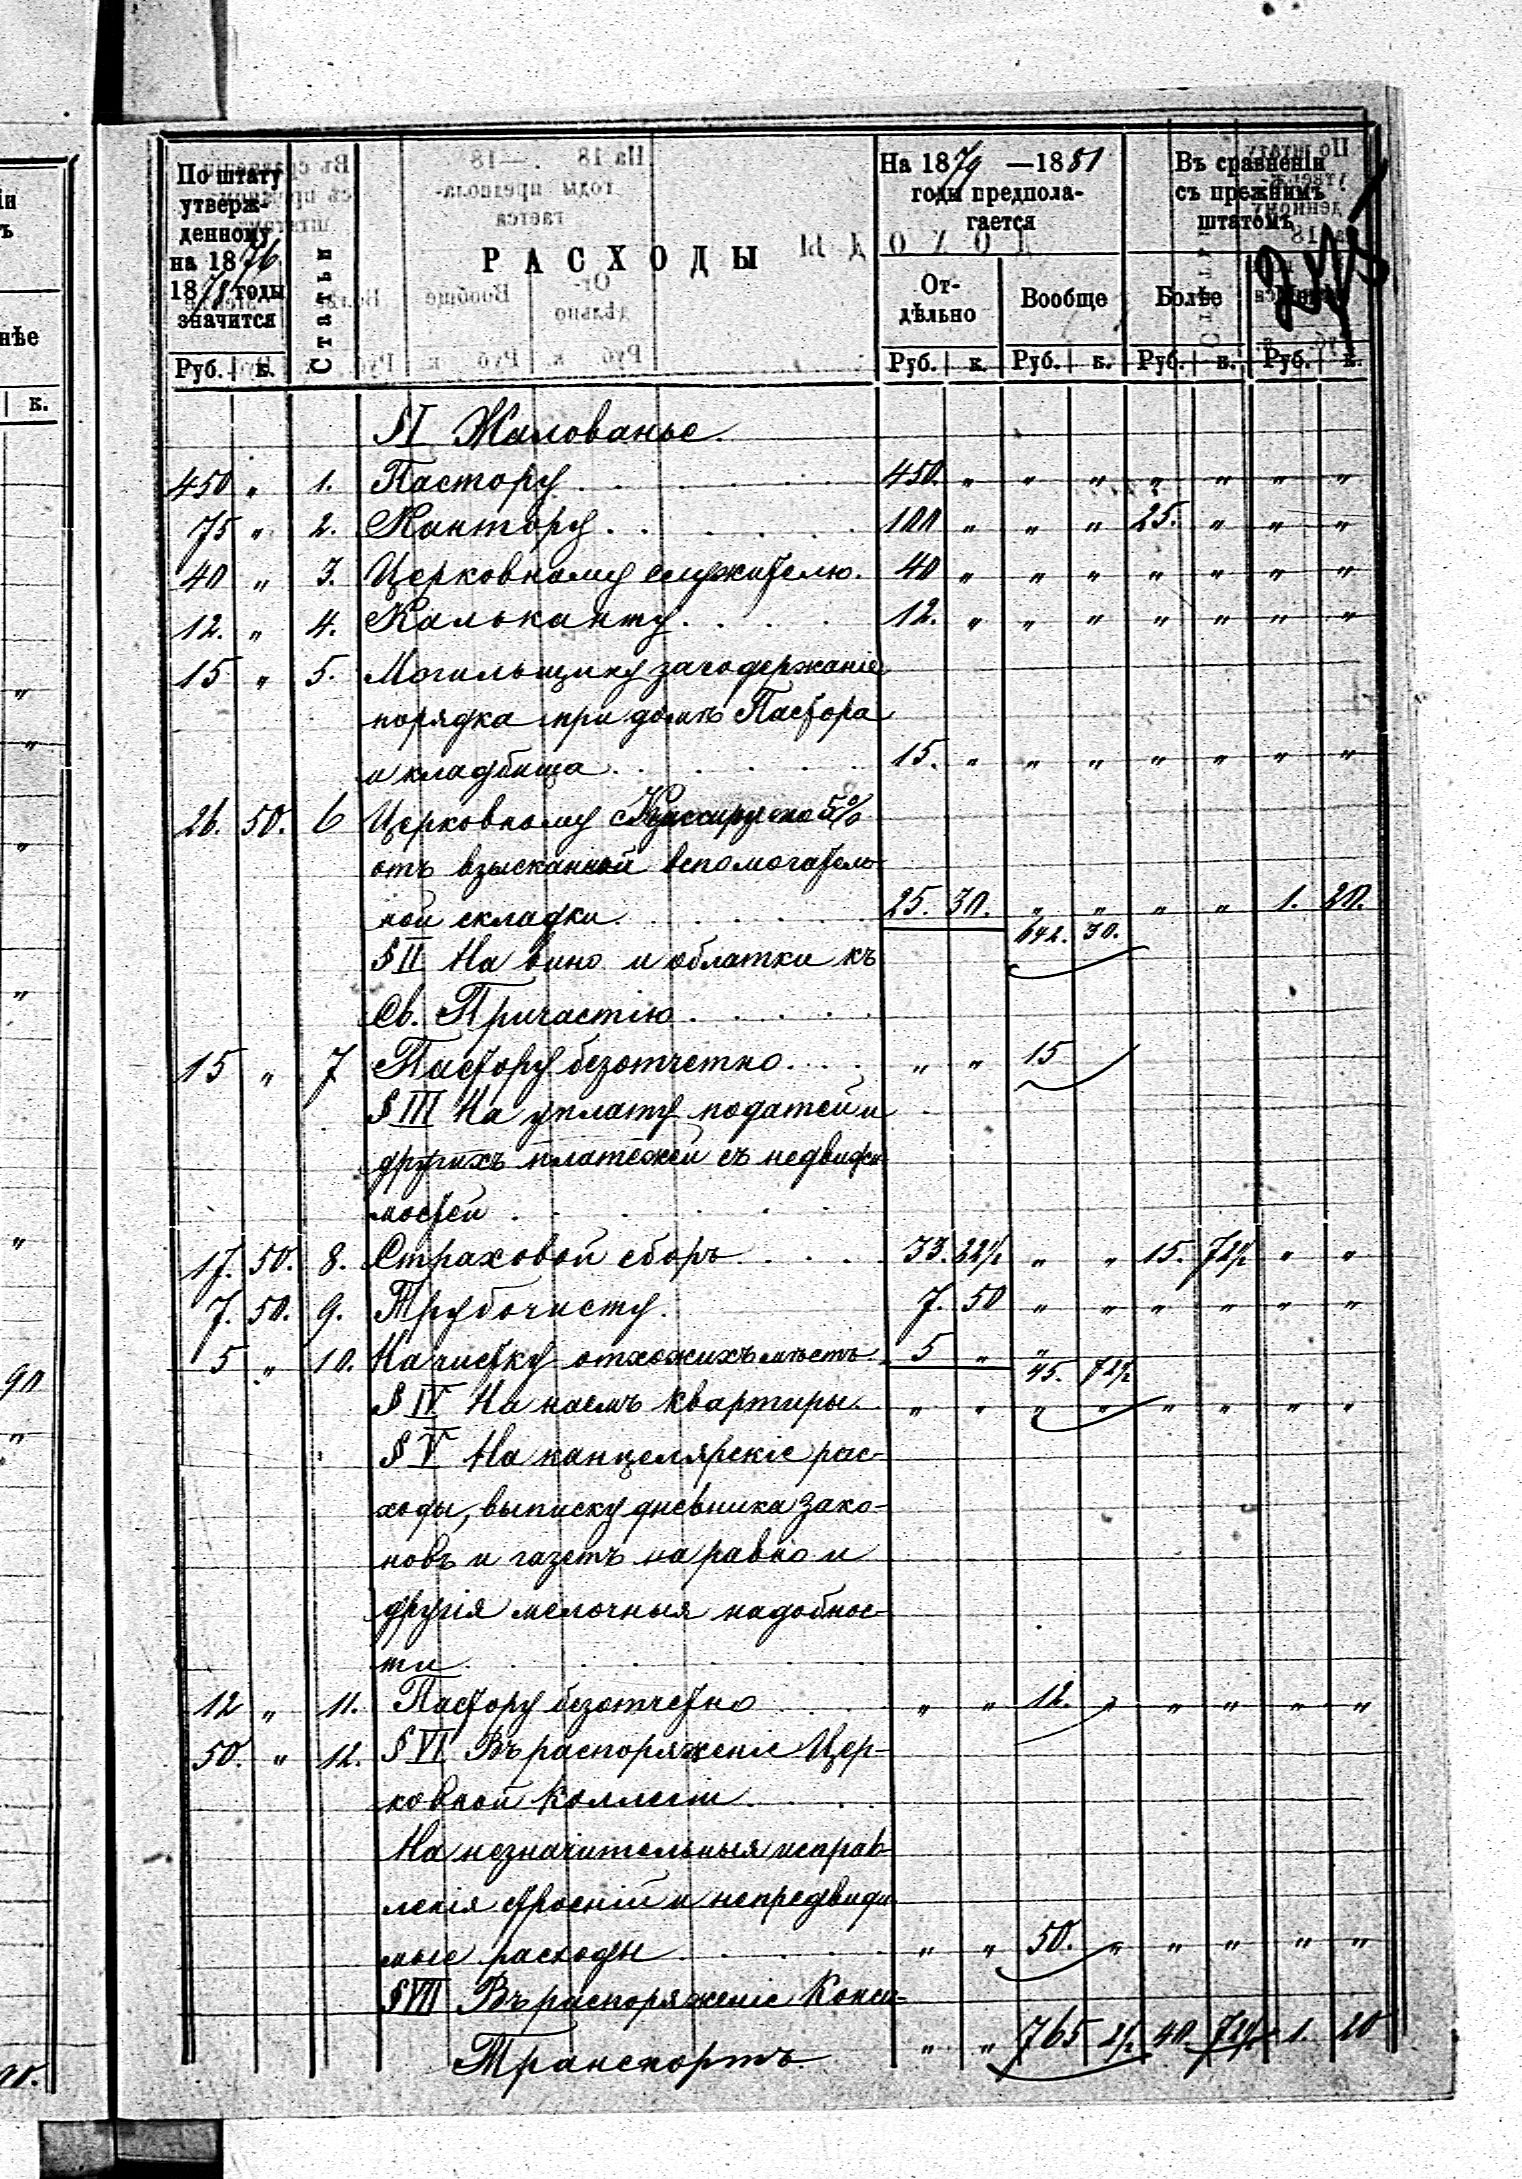 По штату утверж-денному на 1876 1878 годы значится
Статьи
РАСХОДЫ
На 1879 —1881 годы предпола-гается
Въ сравненіи съ прежнимъ штатомъ
От-дѣльно Вообще Болѣе
Руб. к. Руб. к. Руб. к. Руб. к. Руб. к.
§I Жалованье.
450 „ 1. Пастору 450. „ „ „ „ „ „ „
75 „ 2. Кантору 100 „ „ „ 25. „ „ „
40 „ 3. Церковному служителю. 40 „ „ „ „ „ „ „
12. „ 4. Кальканту 12. „ „ „ „ „ „ „
15 „ 5. Могильщику за содержаніе
порядка при домѣ Пастора
и кладбища 15. „ „ „ „ „ „ „
26. 50. 6 Церковному Кассиру 5%
отъ взысканной вспомогатель-
ной складки 25. 30. „ „ „ „ 1. 20.
642. 30.
§II На вино и облатки къ
Св. Причастію
15 „ 7 Пастору безотчетно „ „ 15
§III На уплату податей и
другихъ платежей съ недвижи-
мостей
17. 50. 8. Страховой сборъ 33. 22½ „ „ 15. 72½ „ „
7. 50. 9. Трубочисту. 7. 50 „ „ „ „ „ „
5 „ 10. На чистку отхожихъ мѣстъ 5 „ „
45. 72½
§IV На наемъ квартиры. „ „ „ „ „ „ „ „
§V На канцелярскіе рас-
ходы, выписку дневника зако-
новъ и газетъ на равно и
другія мелочныя надобнос-
ти
12 „ 11. Пастору безотчетно „ „ 12. „ „ „ „ „
50. „ 12. §VI Въ распоряженіе Цер-
ковной Коллегіи
На незначительныя исправ-
ленія строеній и непредвиди-
мые расходы „ „ 50. „ „ „ „ „
§VII Въ распоряженіе Конси-
Транспортъ „ „ 765 2½ 40 72½ 1. 20